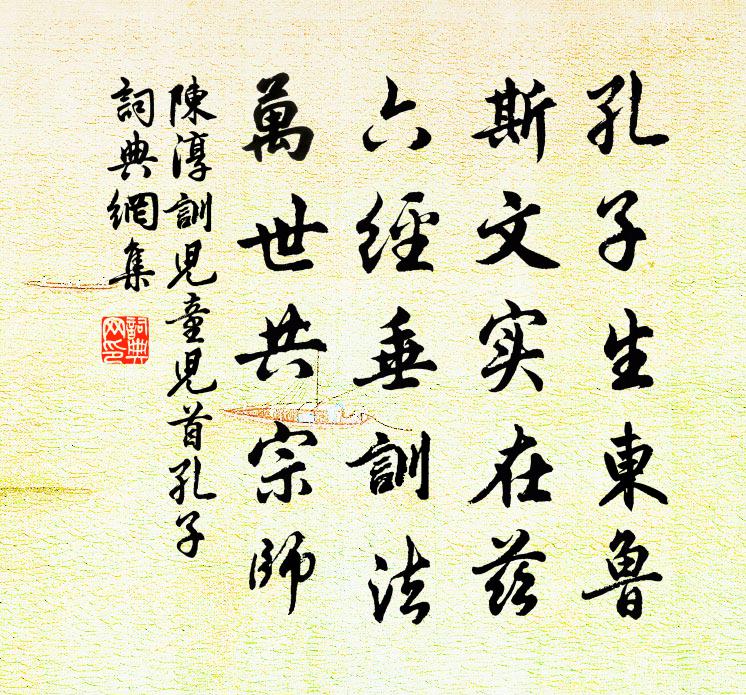 孔子生東魯
斯文实在茲
六經垂訓法
萬世共宗師
陳淳訓児童児首孔子
詞典網集
詞典
网印